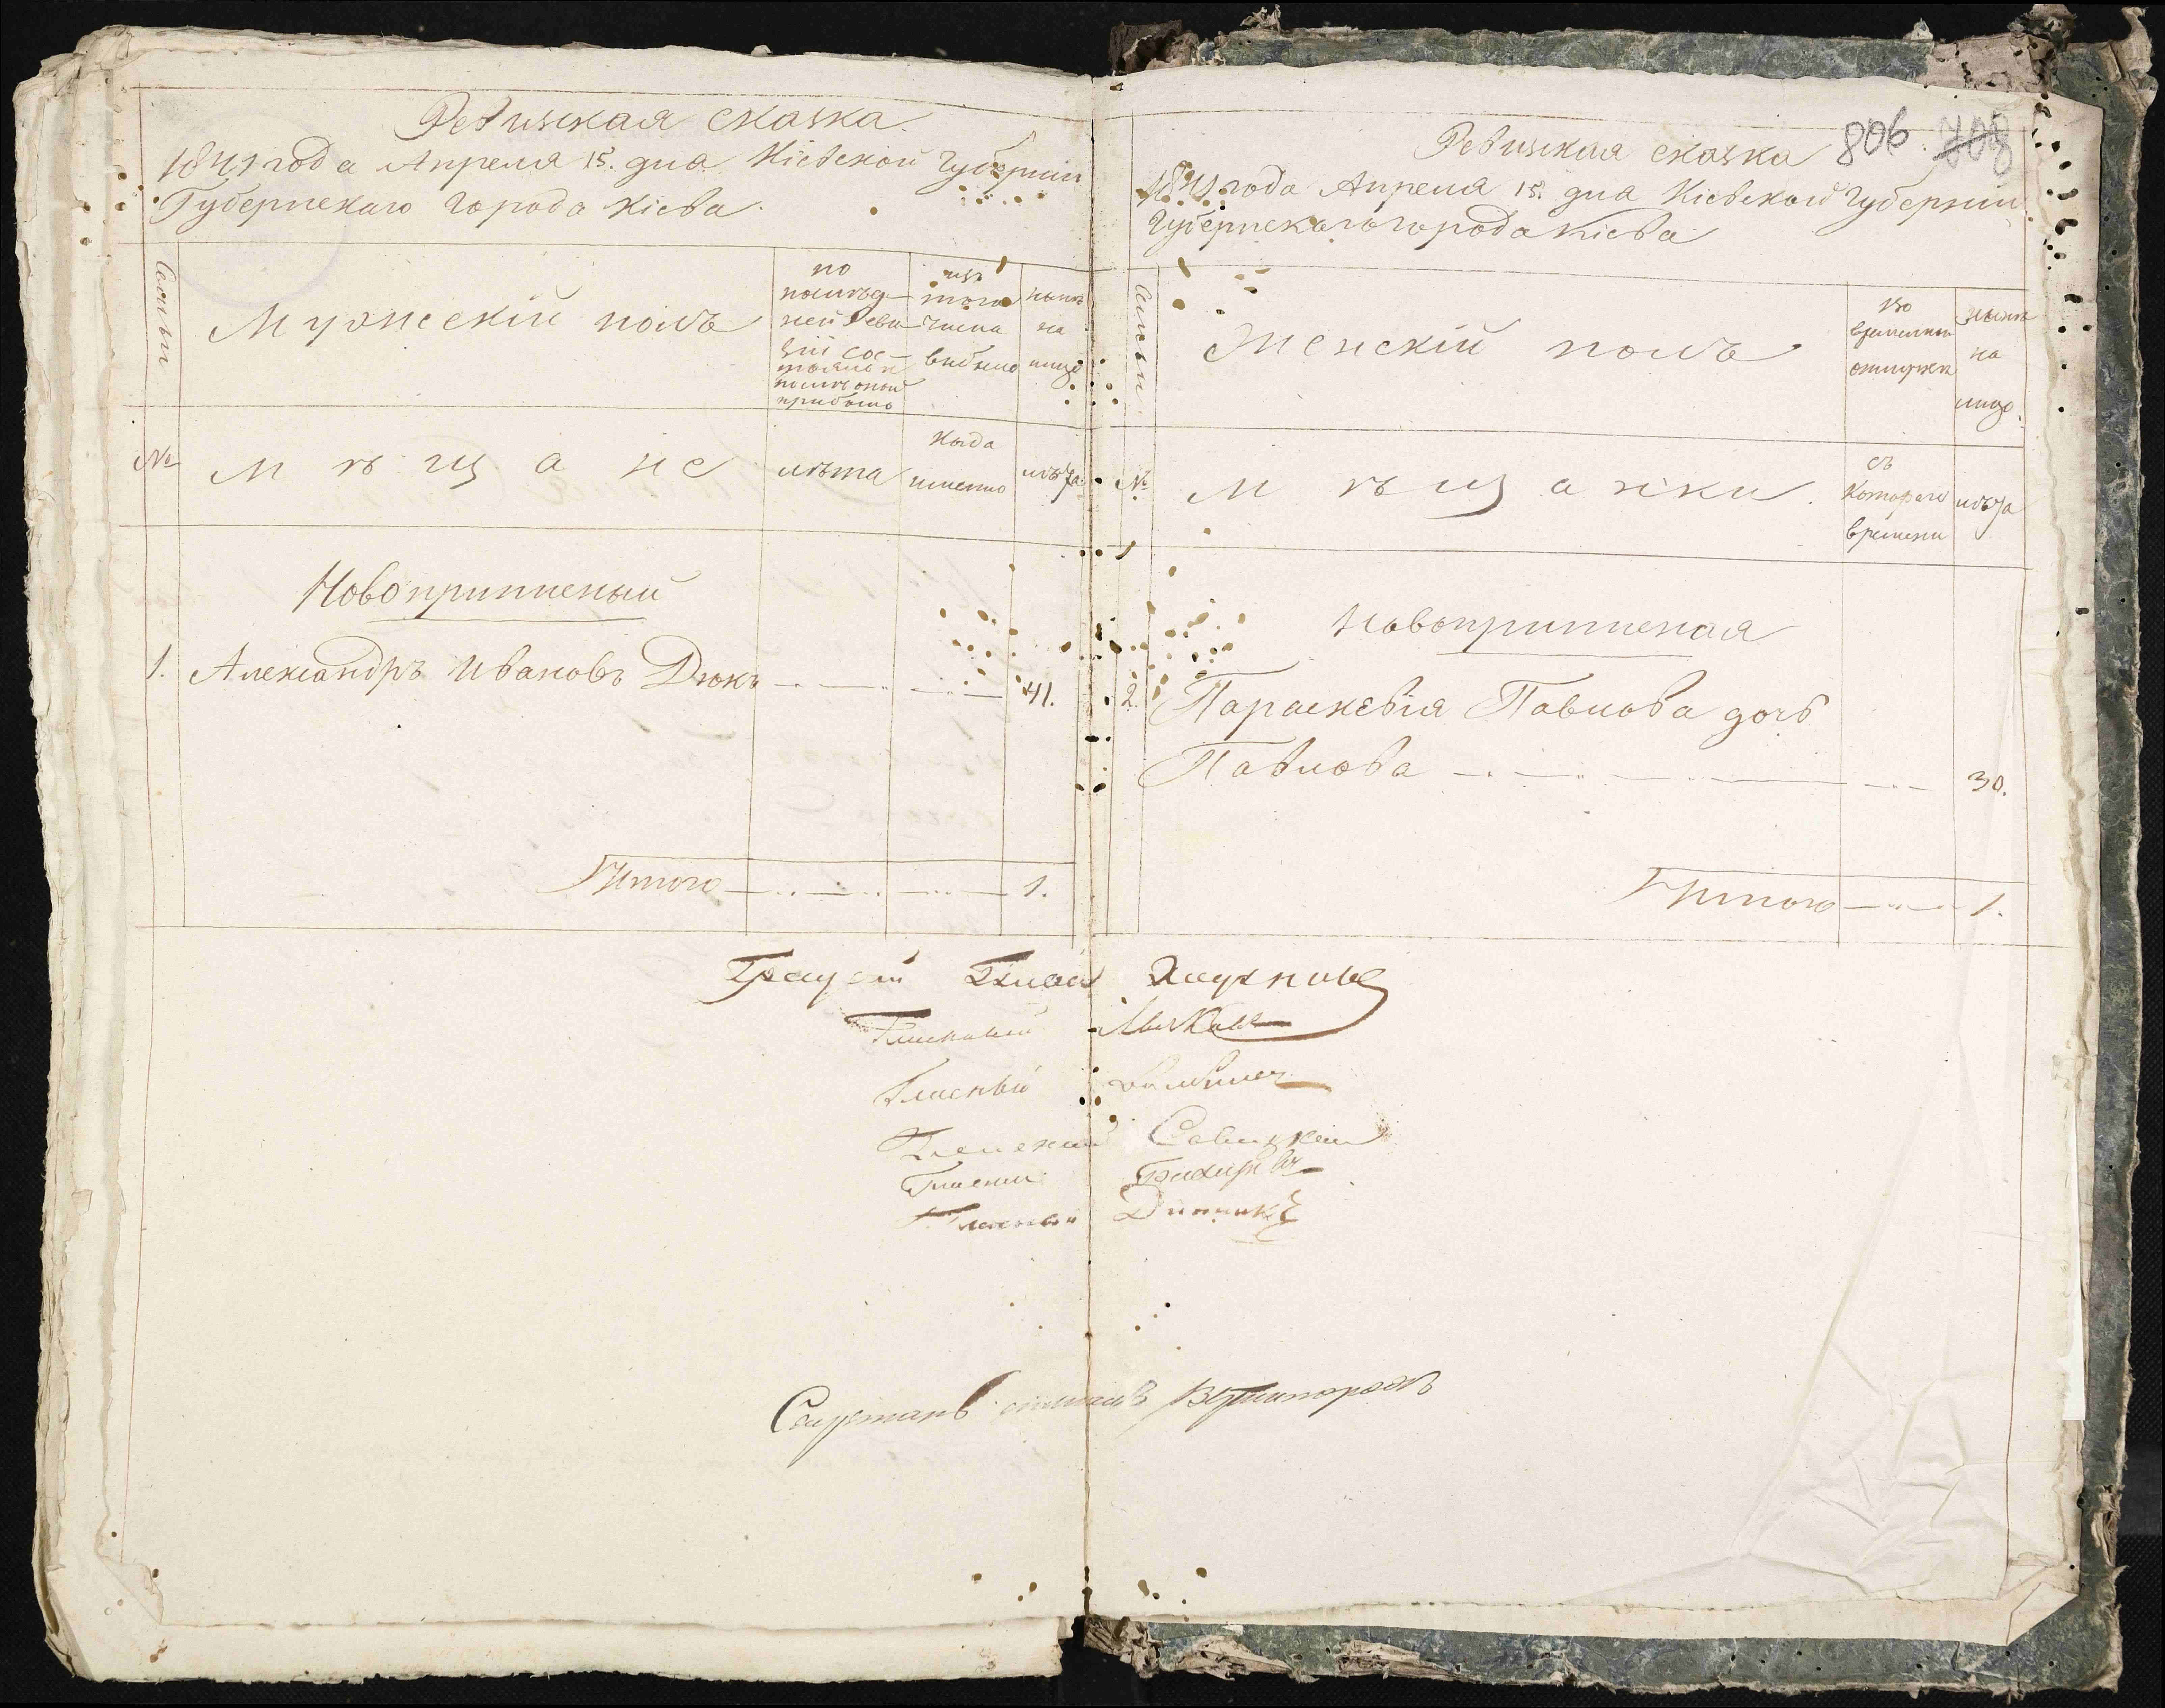 Ревизская сказка.
1841 года Апреля 15. дня Кіевской Губерніи
Губернскаго города Кіева.
Семьи
Мужескій полъ
по
послѣд-
ней реви-
зіи сос-
тояло и
послѣ оной
прибыло
изъ
того
числа
выбыло
нынѣ
на
лицо
№
Мѣщане
лѣта
Куда
именно
лѣта
Новоприписный
1. Александръ Ивановъ Дюкъ 41.
Итого 1.
806. 708
Ревизская сказка
1841 года Апреля 15. дня Кіевской Губерніи
Губернскаго города Кіева
Семьи.
Женскій полъ
во
временной
отлучкѣ
нынѣ
на
лицо.
№
Мѣщанки.
съ
котораго
времени
лѣта
1
Новоприписная
2. Параскевія Павлова дочь
Павлова 30.
Итого 1.
Гласный
Гласный
Гласный Савицкій
Гласный
Гласный
Секретарь